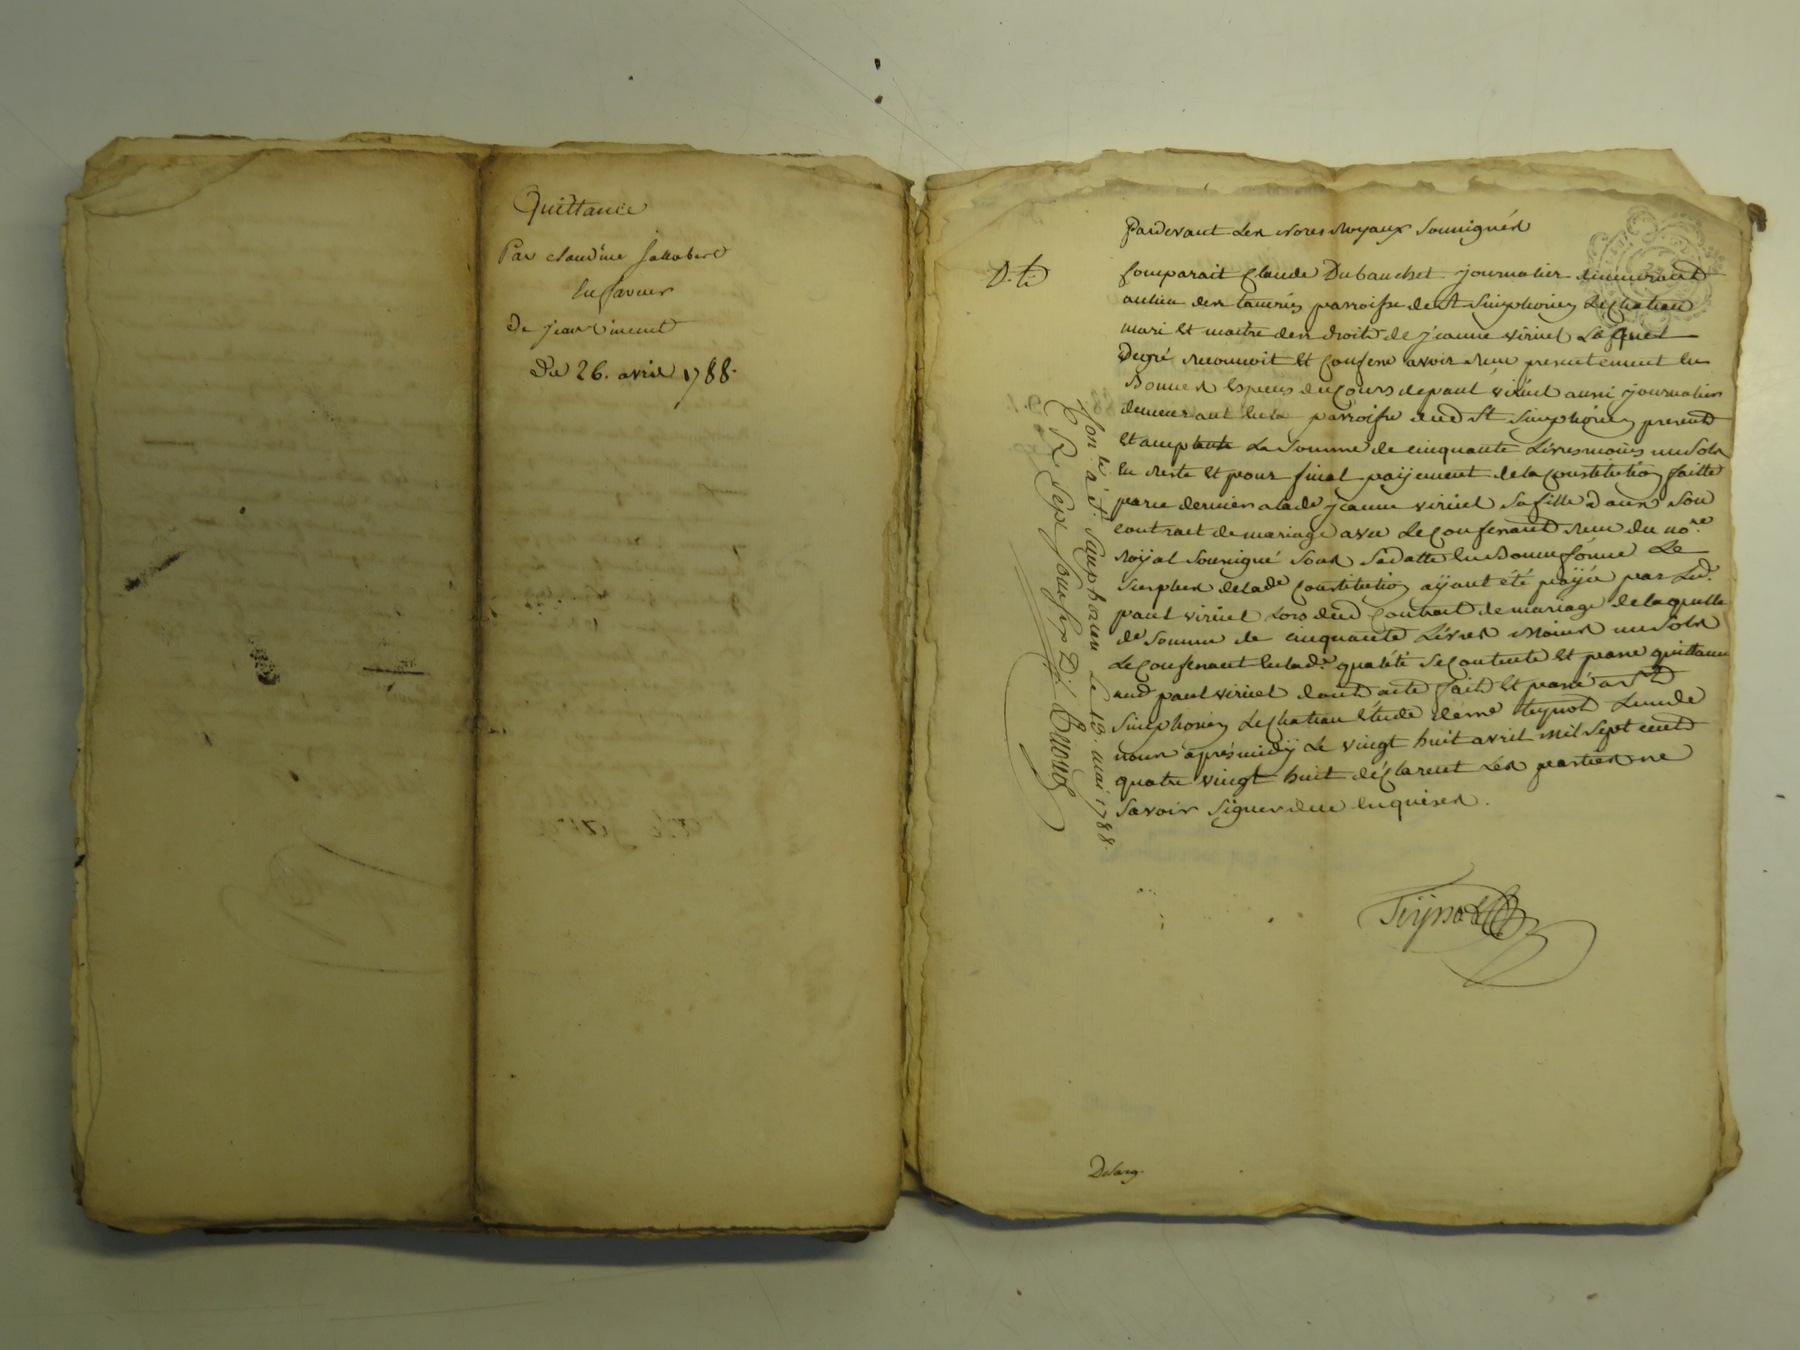 Quittance
Par claudine Jallabert
En faveur
De jean vincent
Du 26. avril 1788.
Pardevant Les Nores Royaux Soussignés
Comparait Claude Dubanchet journalier demeurant
au lieu des paroisse de St Simphorien Le Chateau
mari et maitre des droits de jeanne viricel Lequel
Degré reconnoit et Confesse avoir reçu presentement en
Bonnes Especes du Cours de paul viricel aussi journalier
demeurant en la paroisse dud St Simphorien present
et acceptant La Somme de cinquante Livres moins un Sols
En reste et pour final payement de la Constitution faitte
par ce dernier a lade jeanne viricel Sa fille Dans Son
contract de mariage avec Le Confessant reçu du nore
Royal Soussigné Sous Sa datte En Bonne forme Le
Surplus de lade Constitution ayant été payée par Led.
paul viricel Lors dud Contract de mariage de laquelle
de Somme de cinquante Livres Moins un Sols
Le Confessant En lade qualité Se Contente et passe quittance
aud paul viricel dont acte fait et passé a St
Simphorien Le Chateau Etude de me Teynot L'un de
nous après midy Le vingt huit avril mil Sept cent
quatre vingt huit déclarent Les parties ne
Savoir Signer de ce Enquises.
Con.lé à St. Simphorien Le 13. mai 1788.
R. Sept
Teynot